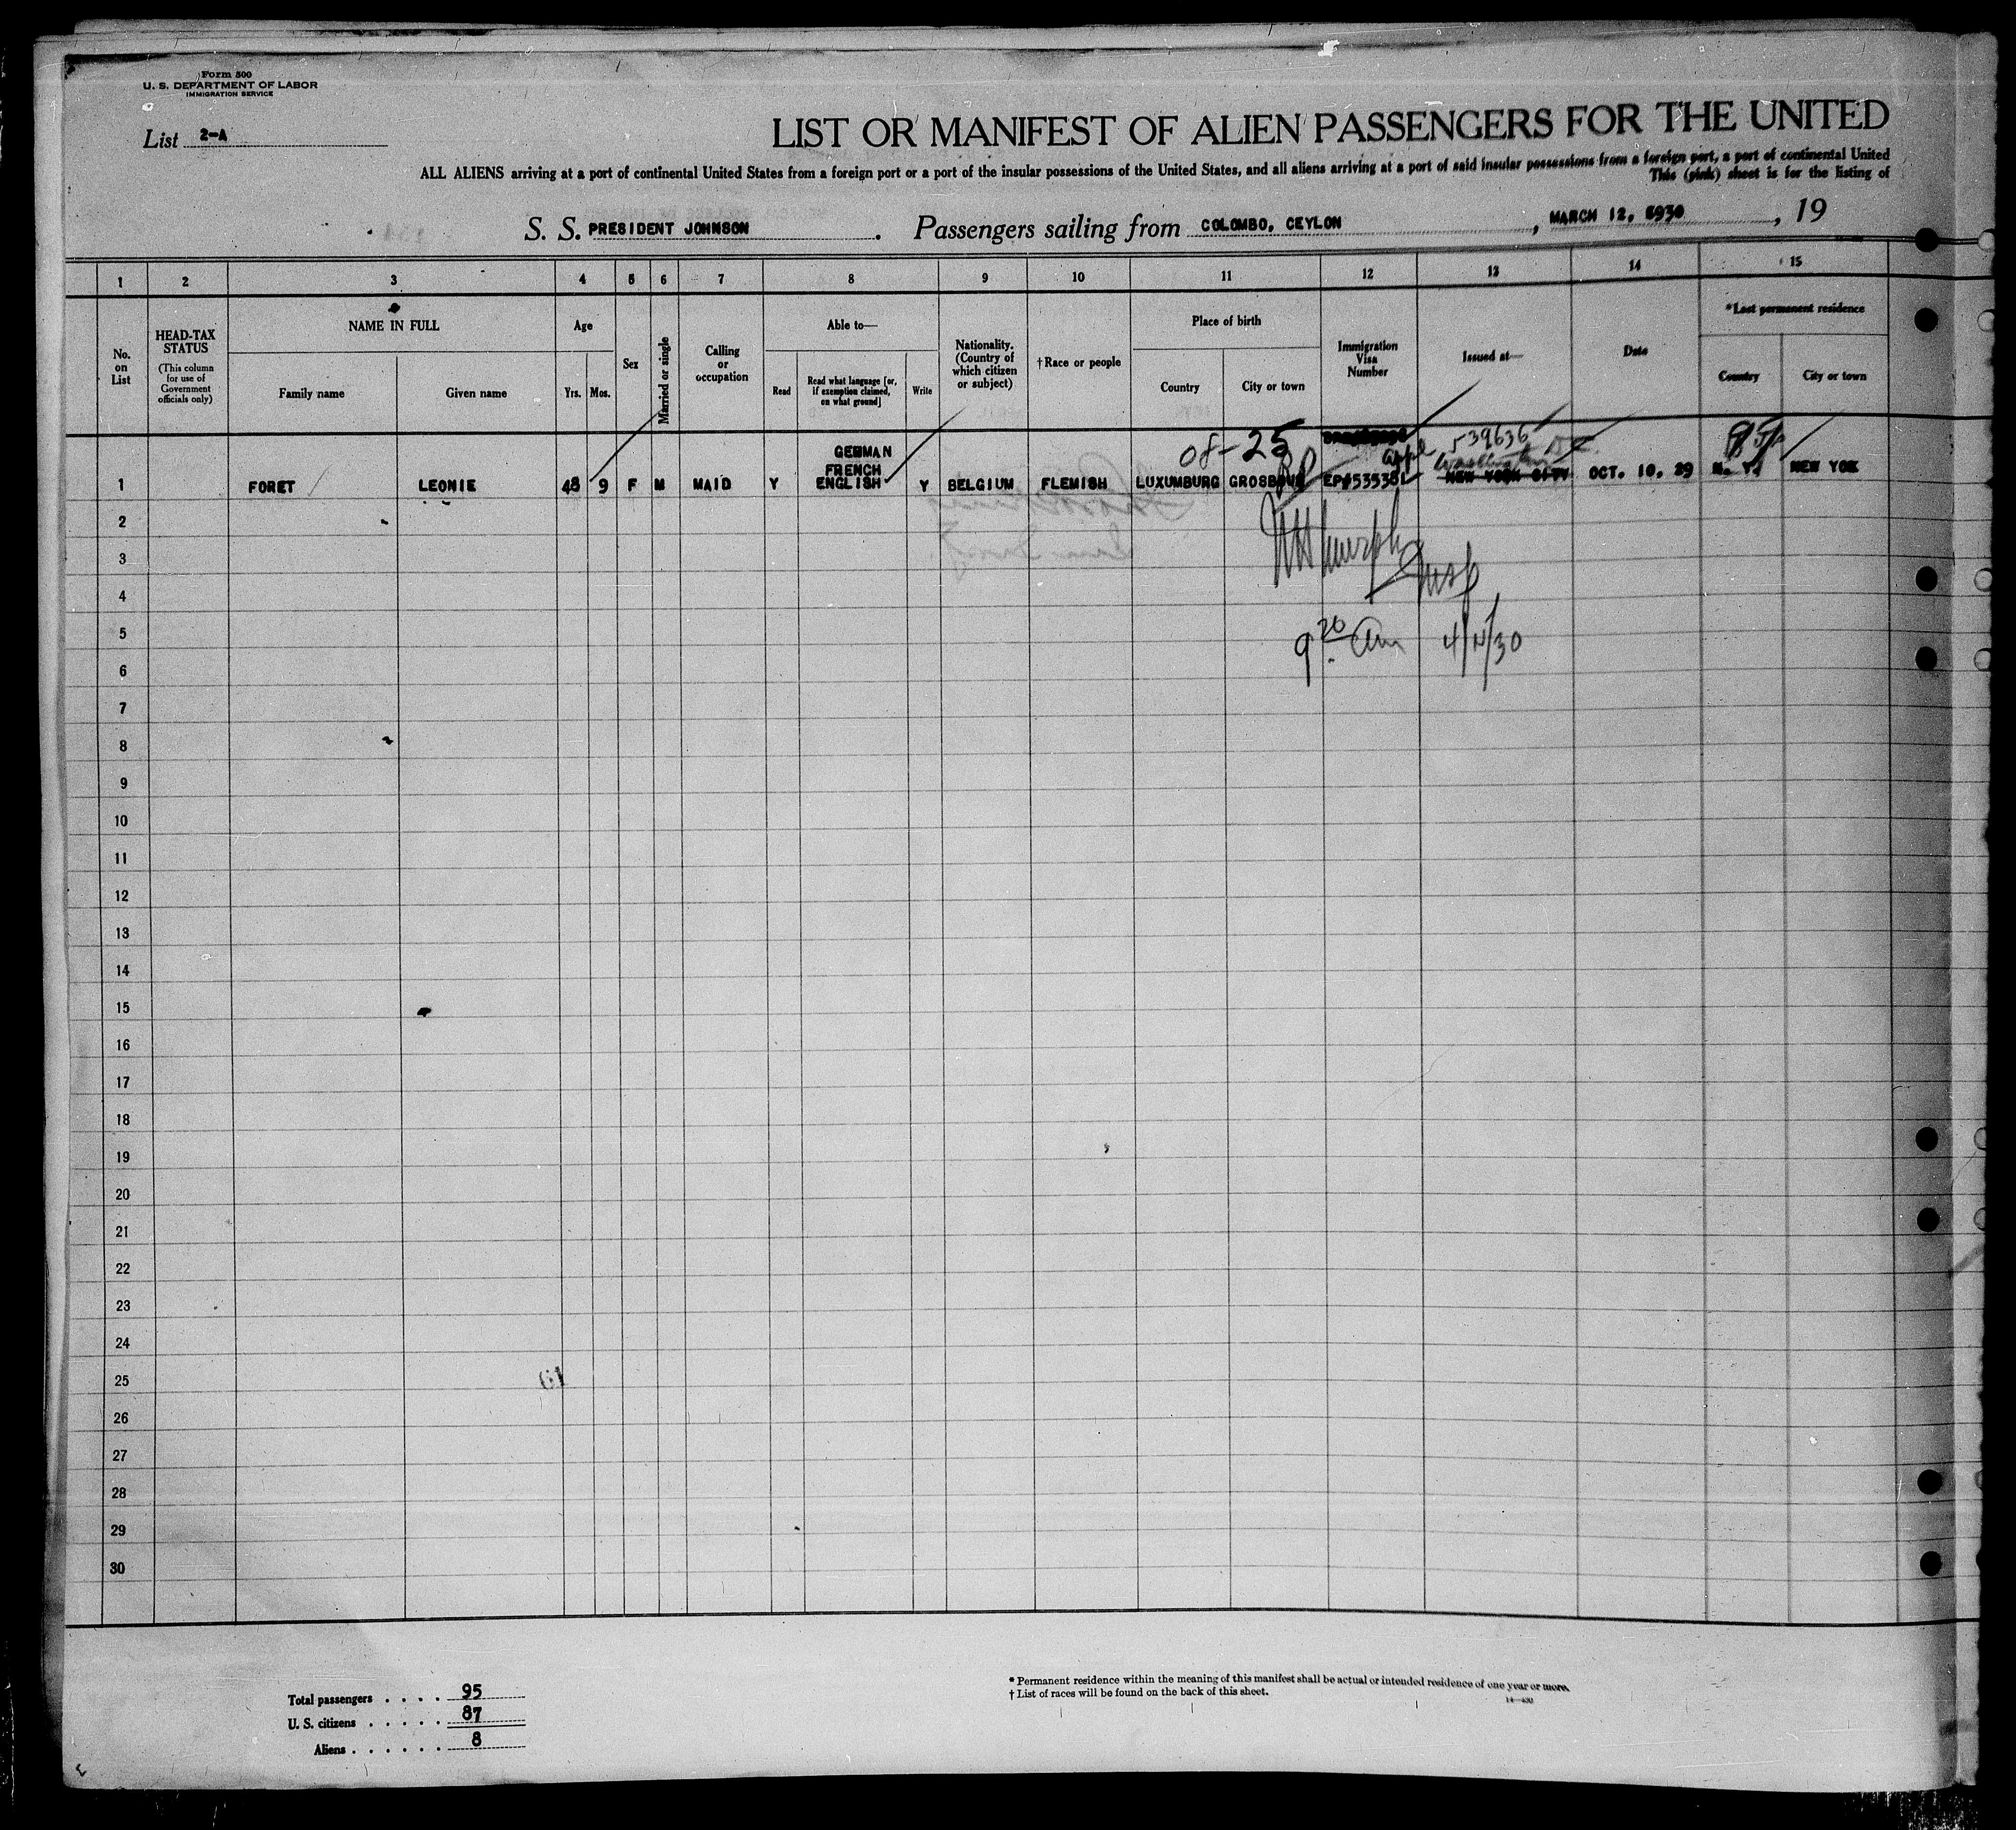 Form 500
U. S. DEPARTMENT OF LABOR
IMMIGRATION SERVICE
List 2-A
LIST OR MANIFEST OF ALIEN PASSENGERS FOR THE UNITED
ALL ALIENS arriving at a port of continental United States from a foreign port or a port of the insular possessions of the United States, and all aliens arriving at a port of said insular possessions from a foreign port, a port of continental United
This (pink) sheet is for the listing of
S. S. PRESIDENT JOHNSON. Passengers sailing from COLOMBO, CEYLON, MARCH 12, 1930, 19
1 2 3 4 5 6 7 8 9 10 11 12 13 14 15
No. on List
HEAD-TAX STATUS
(This column for use of Government officials only)
NAME IN FULL
Family name
Given name
Age
Yrs.
Mos.
Sex
Married or single
Calling or occupation
Able to—
Read
Read what language [or, if exemption claimed, on what ground]
Write
Nationality. (Country of which citizen or subject)
† Race or people
Place of birth
Country
City or town
Immigration Visa Number
Issued at—
Date
*Last permanent residence
Country
City or town
08-25
539636
GERMAN
FRENCH
1 FORET LEONIE 48 9 F M MAID Y ENGLISH Y BELGIUM FLEMISH LUXUMBURG EP#535381 NEW YORK CITY OCT. 10. 29 N. Y. NEW YOK
2
3
4
5
9 20 am 4/4/30
6
7
8
9
10
11
12
13
14
15
16
17
18
19
20
21
22
23
24
25
26
27
28
29
30
Total passengers . . . . 95
U. S. citizens . . . . . 87
Aliens . . . . . . 8
* Permanent residence within the meaning of this manifest shall be actual or intended residence of one year or more.
† List of races will be found on the back of this sheet.